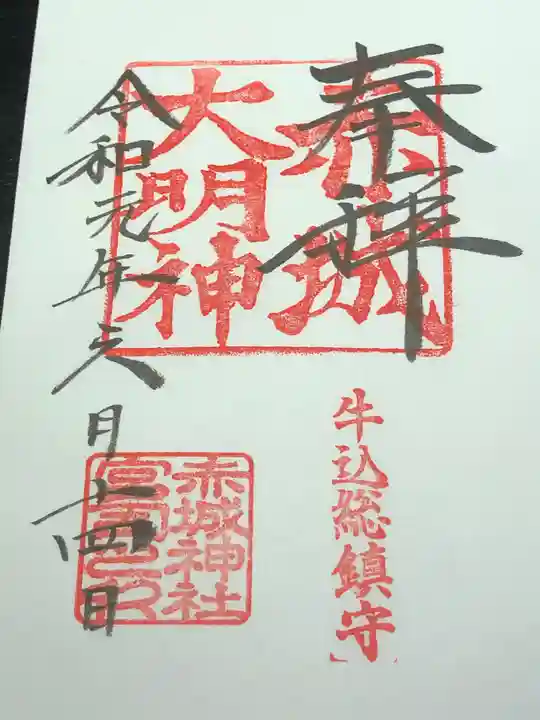 奉拝
赤城
大明神
牛込総鎮守
令和元年六月十四日
赤城神社